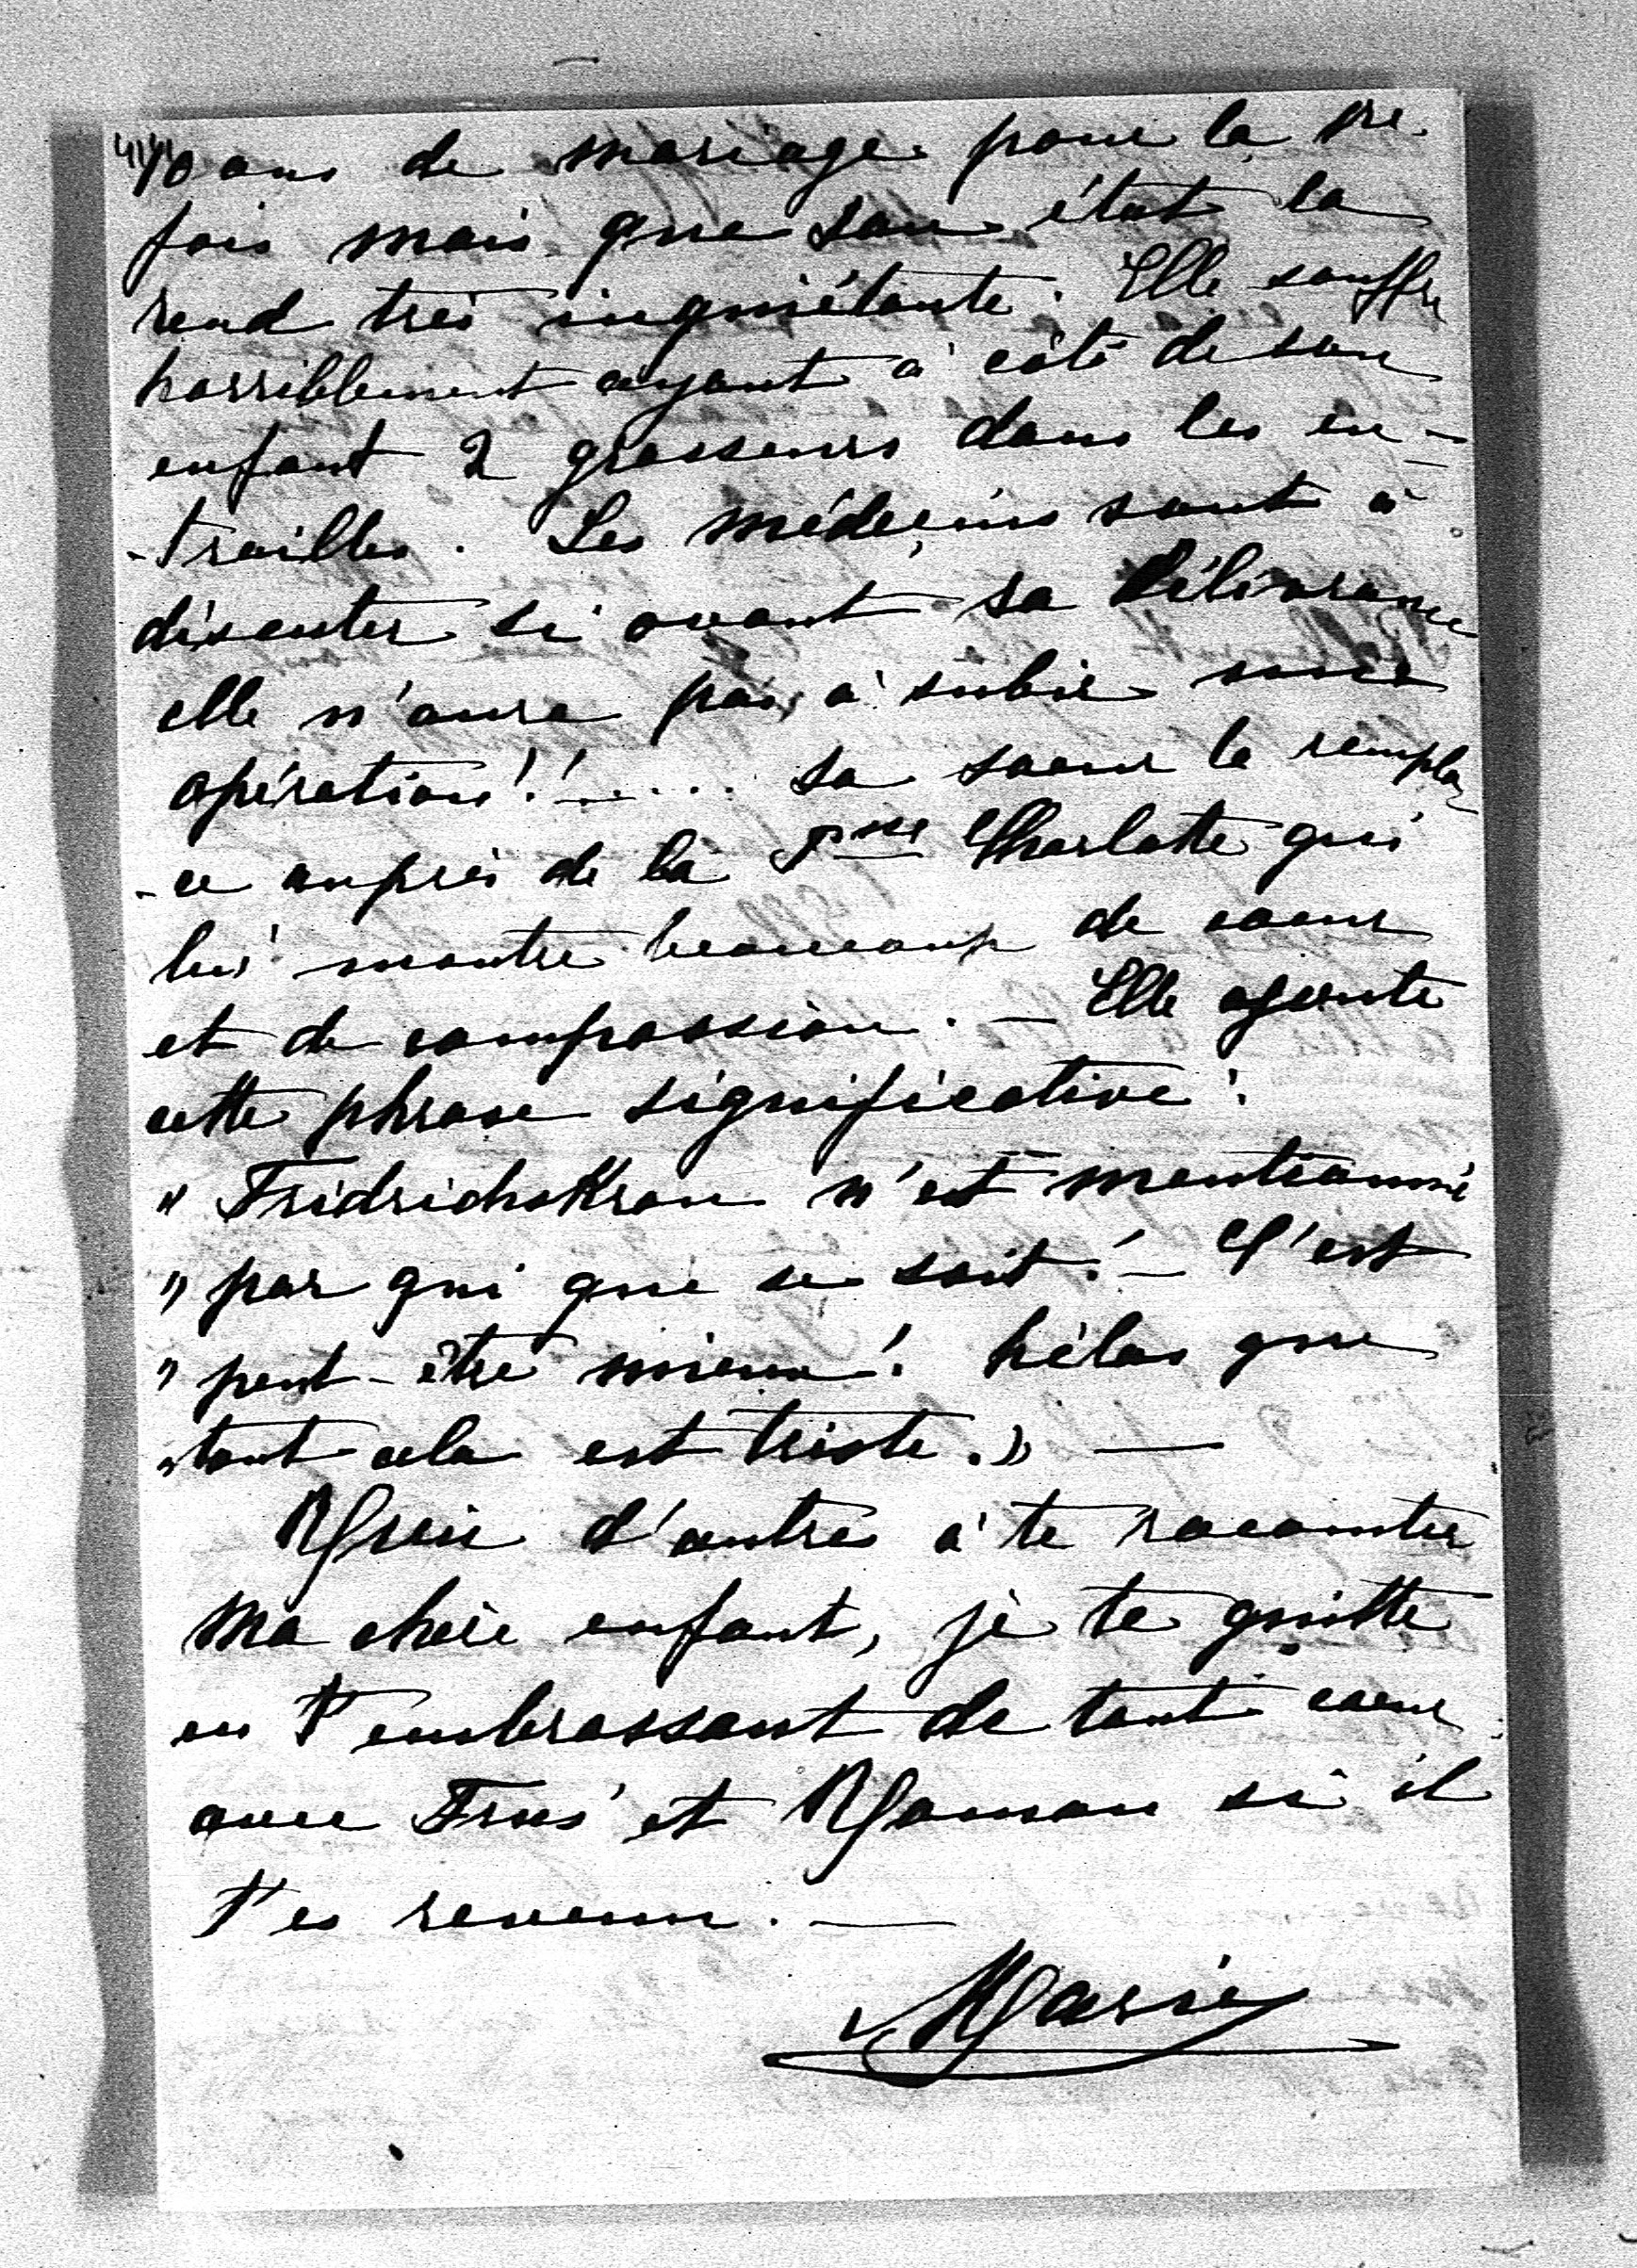 10 ans de mariage pour la 1re
fois mais que son état la
rend très inquiétante. Elle souffre
horriblement ayant à côté de son
enfant 2 grosseurs dans les en-
-trailles. Les médecins sont à
discuter si avant sa délivrance
elle n'aura pas à subir une
opération!!..... sa soeur la rempla
-ce auprès de la Psse Charlotte qui
lui montre beaucoup de coeur
et de compassion. — Elle ajoute
cette phrase significative:
" Fridrichskron n'est mentionné
" par qui que se soit! — C'est
" peut-être mieux! hélas que
" tout cela est triste.» —
Rien d'autres à te raconter
Ma chère enfant, je te quitte
en t'embrassant de tout coeur
avec et Maman si il
t'es revenu. —
Marie